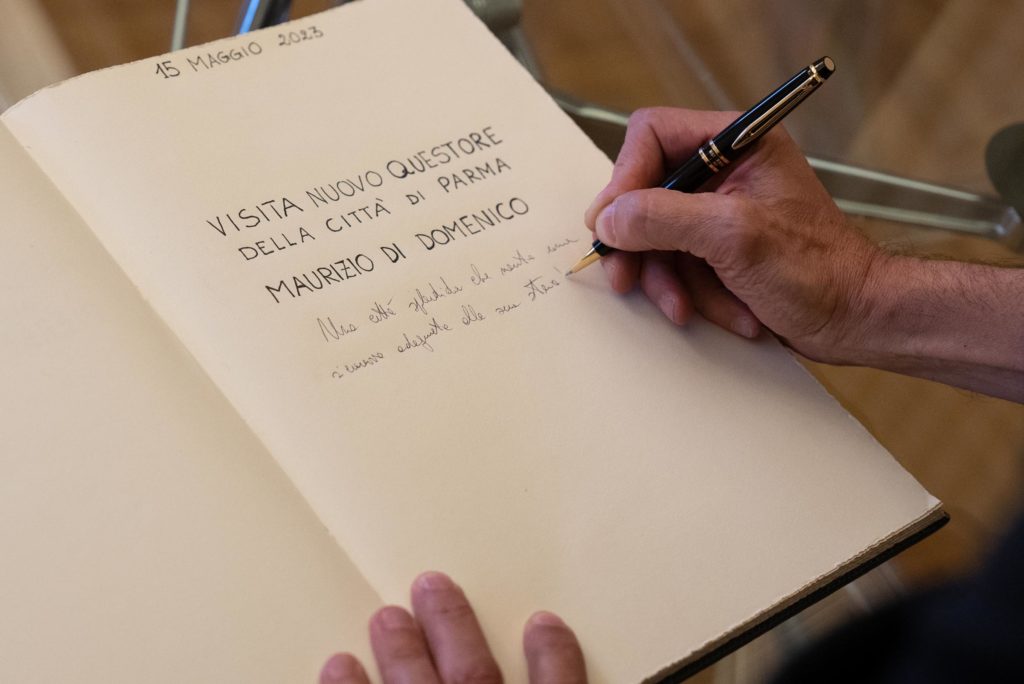 15 MAGGIO 2023
VISITA NUOVO QUESTORE
DELLA CITTÀ DI PARMA
MAURIZIO DI DOMENICO
Una città splendida che merita una
sicurezza adeguata alla sua